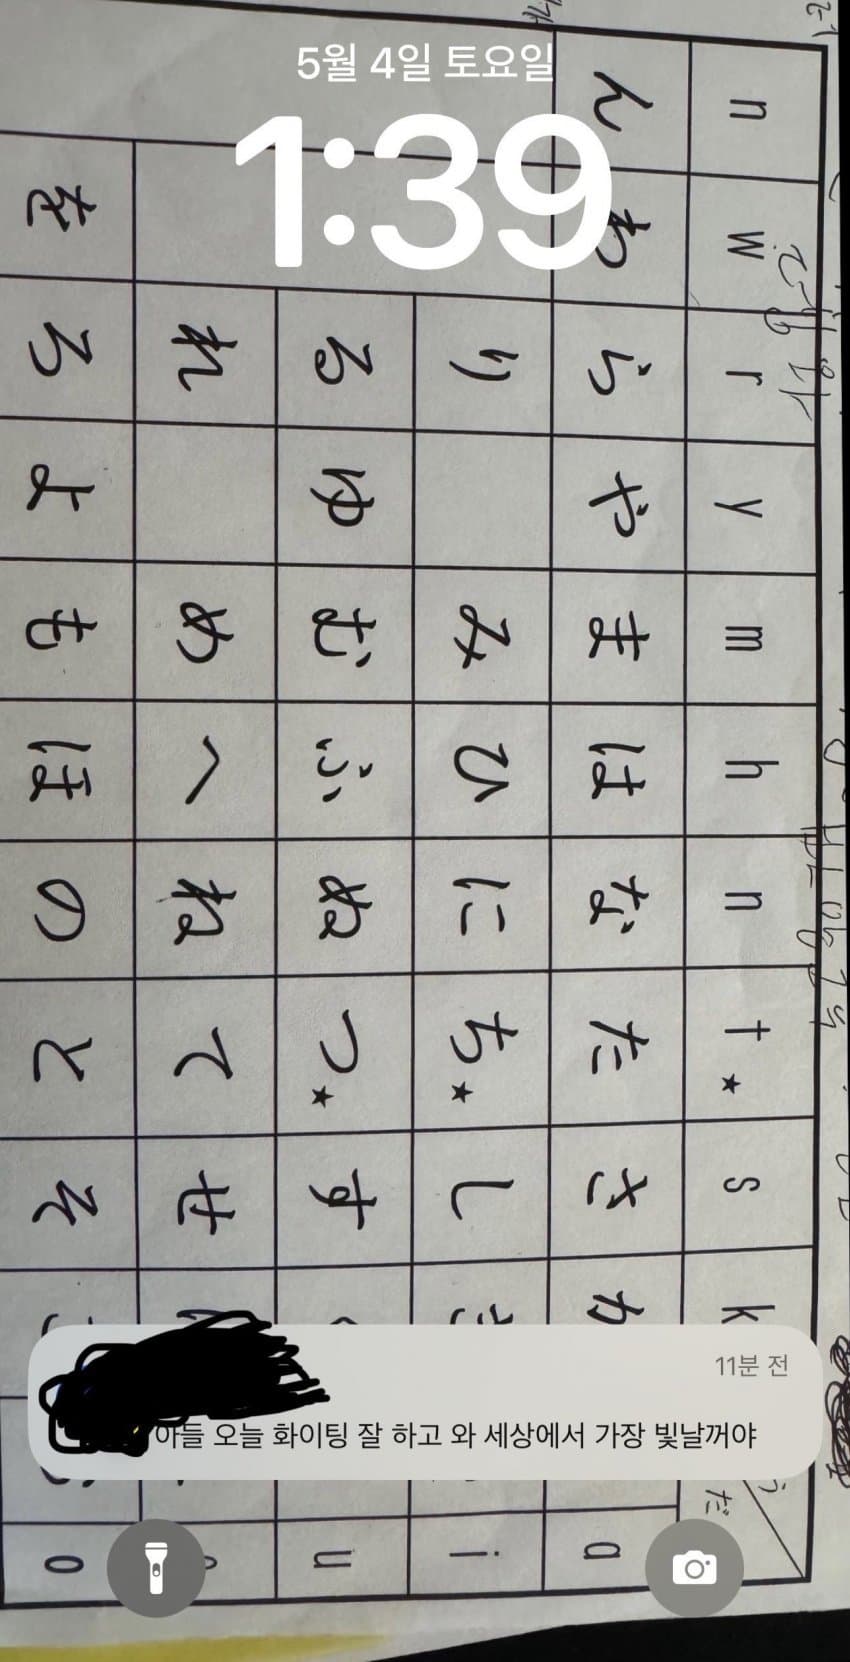 5월 4일 토요일
1:39
n w r y m h n t★ s k
ん わ ら や ま は な た さ か a
り み ひ に ち★ し き i
る ゆ む ふ ぬ つ★ す u
れ め へ ね て せ
を ろ よ も ほ の と そ o
11분 전
아들 오늘 화이팅 잘 하고 와 세상에서 가장 빛날꺼야